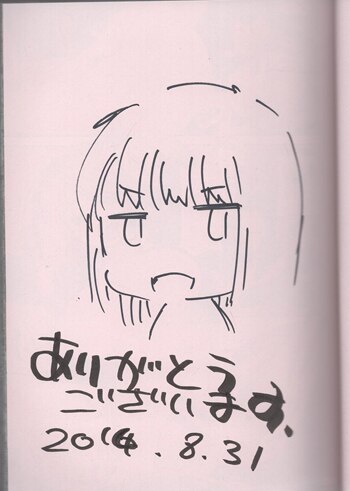 ありがとう
ございます、
2014.8.31